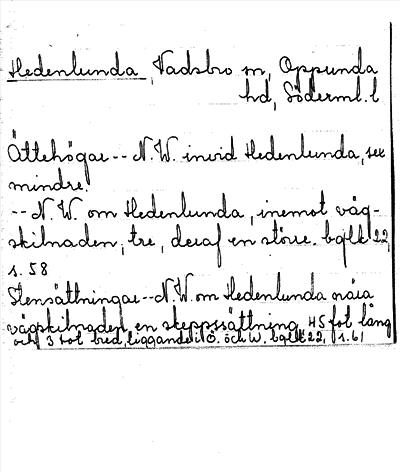 Hedenlunda, Vadsbro sn, Oppunda
hd, Söderml. l
Ättehögar -- N.W. invid Hedenlunda, sex
mindre.
-- N.W. om Hedenlunda, inemot väg-
skilnaden, tre, deraf en större. bglk 22,
s. 58
Stensättningar -- N.W. om Hedenlunda nära
vägskilnaden, en skeppssättning 45 fot lång
och 3 fot bred, liggande i Ö. och W. bglk 22, s. 61